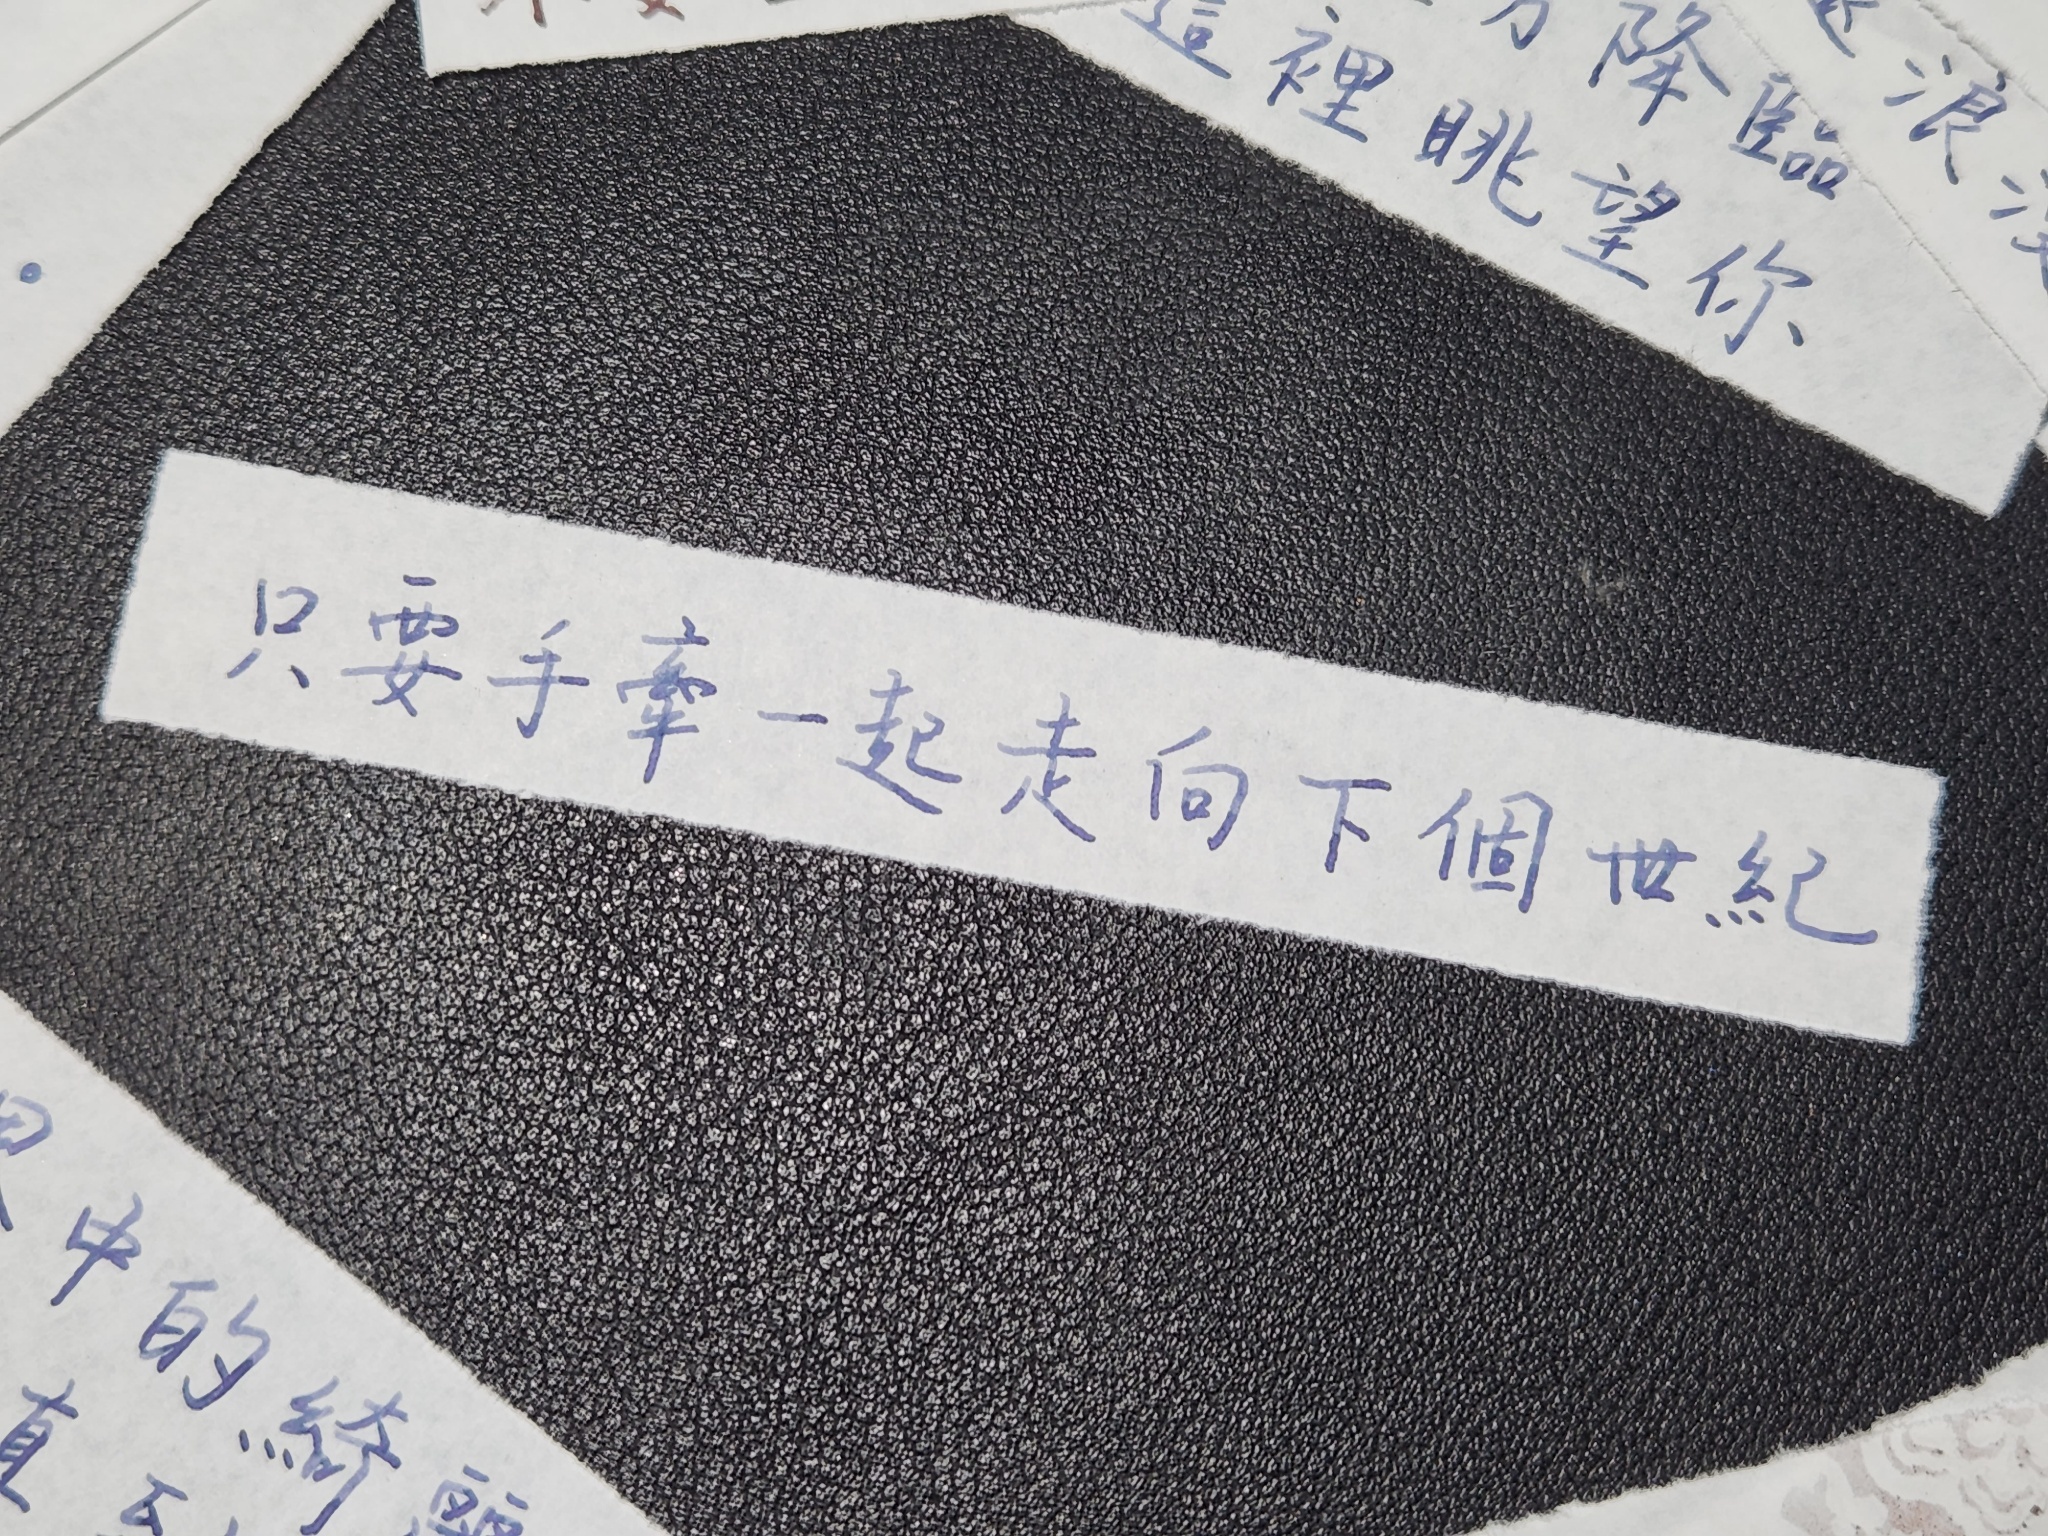 降臨
這裡眺望你
浪
只要手牽一起走向下個世紀
中的綺
直